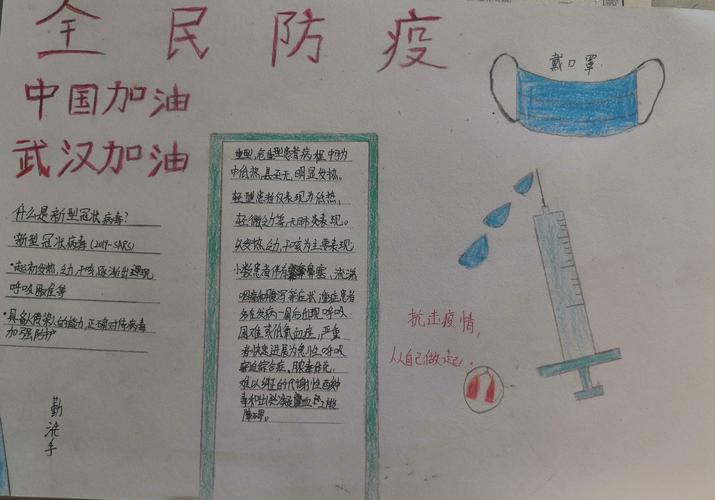 全民防疫
中国加油
武汉加油
戴口罩
什么是新型冠状病毒?
新型冠状病毒(2019-SARS)
·起初发热,乏力,干咳,逐渐出现
呼吸困难等
·具备人传染人的能力,正确对待病毒
加强防护
勤洗手
重型,危重型患者病程中可为
中低热,甚至无明显发热。
轻型患者仅表现为低热,
轻微乏力等,无肺炎表现。
以发热,乏力,干咳为主要表现
小数患者伴有鼻塞,流涕
咽痛和腹泻等症状,重症患者
多在发病一周后出现呼吸
困难或低氧血症,严重
者快速进展为急性呼吸
窘迫综合症,脓毒症休克,
难以纠正的代谢性酸中
毒和出凝血
障碍。
抗击疫情,
从自己做起。